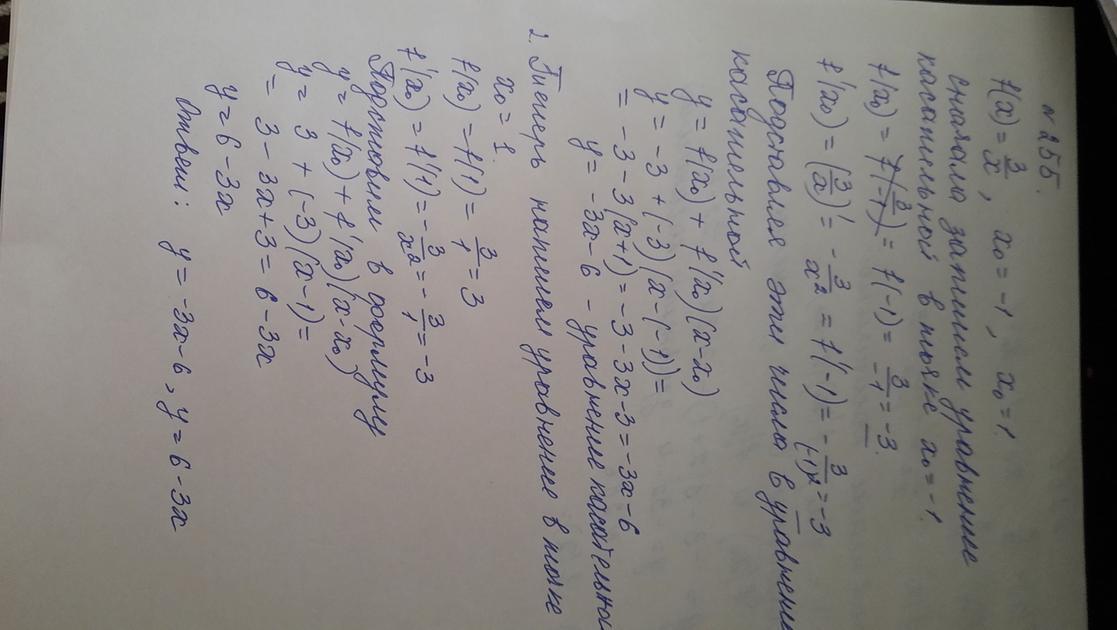 № 255.
f(x) = 3/x, x₀ = -1, x₀ = 1.
сначала запишем уравнение
касательной в точке x₀ = -1.
f(x₀) = f(-1) = 3/-1 = -3.
f'(x₀) = (3/x)' = -3/x² = f'(-1) = -3/(-1)² = -3
Подставляя эти числа в уравнение
касательной
y = f(x₀) + f'(x₀)(x-x₀)
y = -3 + (-3)(x-(-1)) =
= -3 - 3(x+1) = -3 - 3x - 3 = -3x - 6
y = -3x - 6 - уравнение касательной
2. Теперь напишем уравнение в точке
x₀ = 1.
f(x₀) = f(1) = 3/1 = 3
f'(x₀) = f'(1) = -3/x² = -3/1 = -3
Подставим в формулу
y = f(x₀) + f'(x₀)(x-x₀)
y = 3 + (-3)(x-1) =
= 3 - 3x + 3 = 6 - 3x
y = 6 - 3x
Ответ: y = -3x - 6, y = 6 - 3x